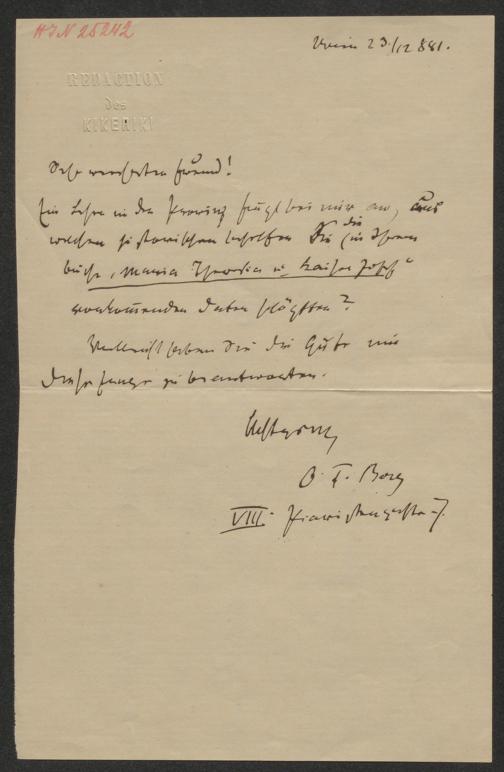 H.I.N 25242
Wien 23/12 881.
REDACTION
des
KIKERIKI
Sehr verehrter Freund!
Ein Lehrer in der Provinz fragt bei mir an, aus
welchen historischen Sie die (in Ihrem
buche „Maria Theresia u. Kaiser Josef“
vorkommenden Daten schöpften?
Vielleicht haben Sie die Güte mir
diese Frage zu beantworten.
Achtungsv
O. F. Berg
VIII. Piaristengasse 7.